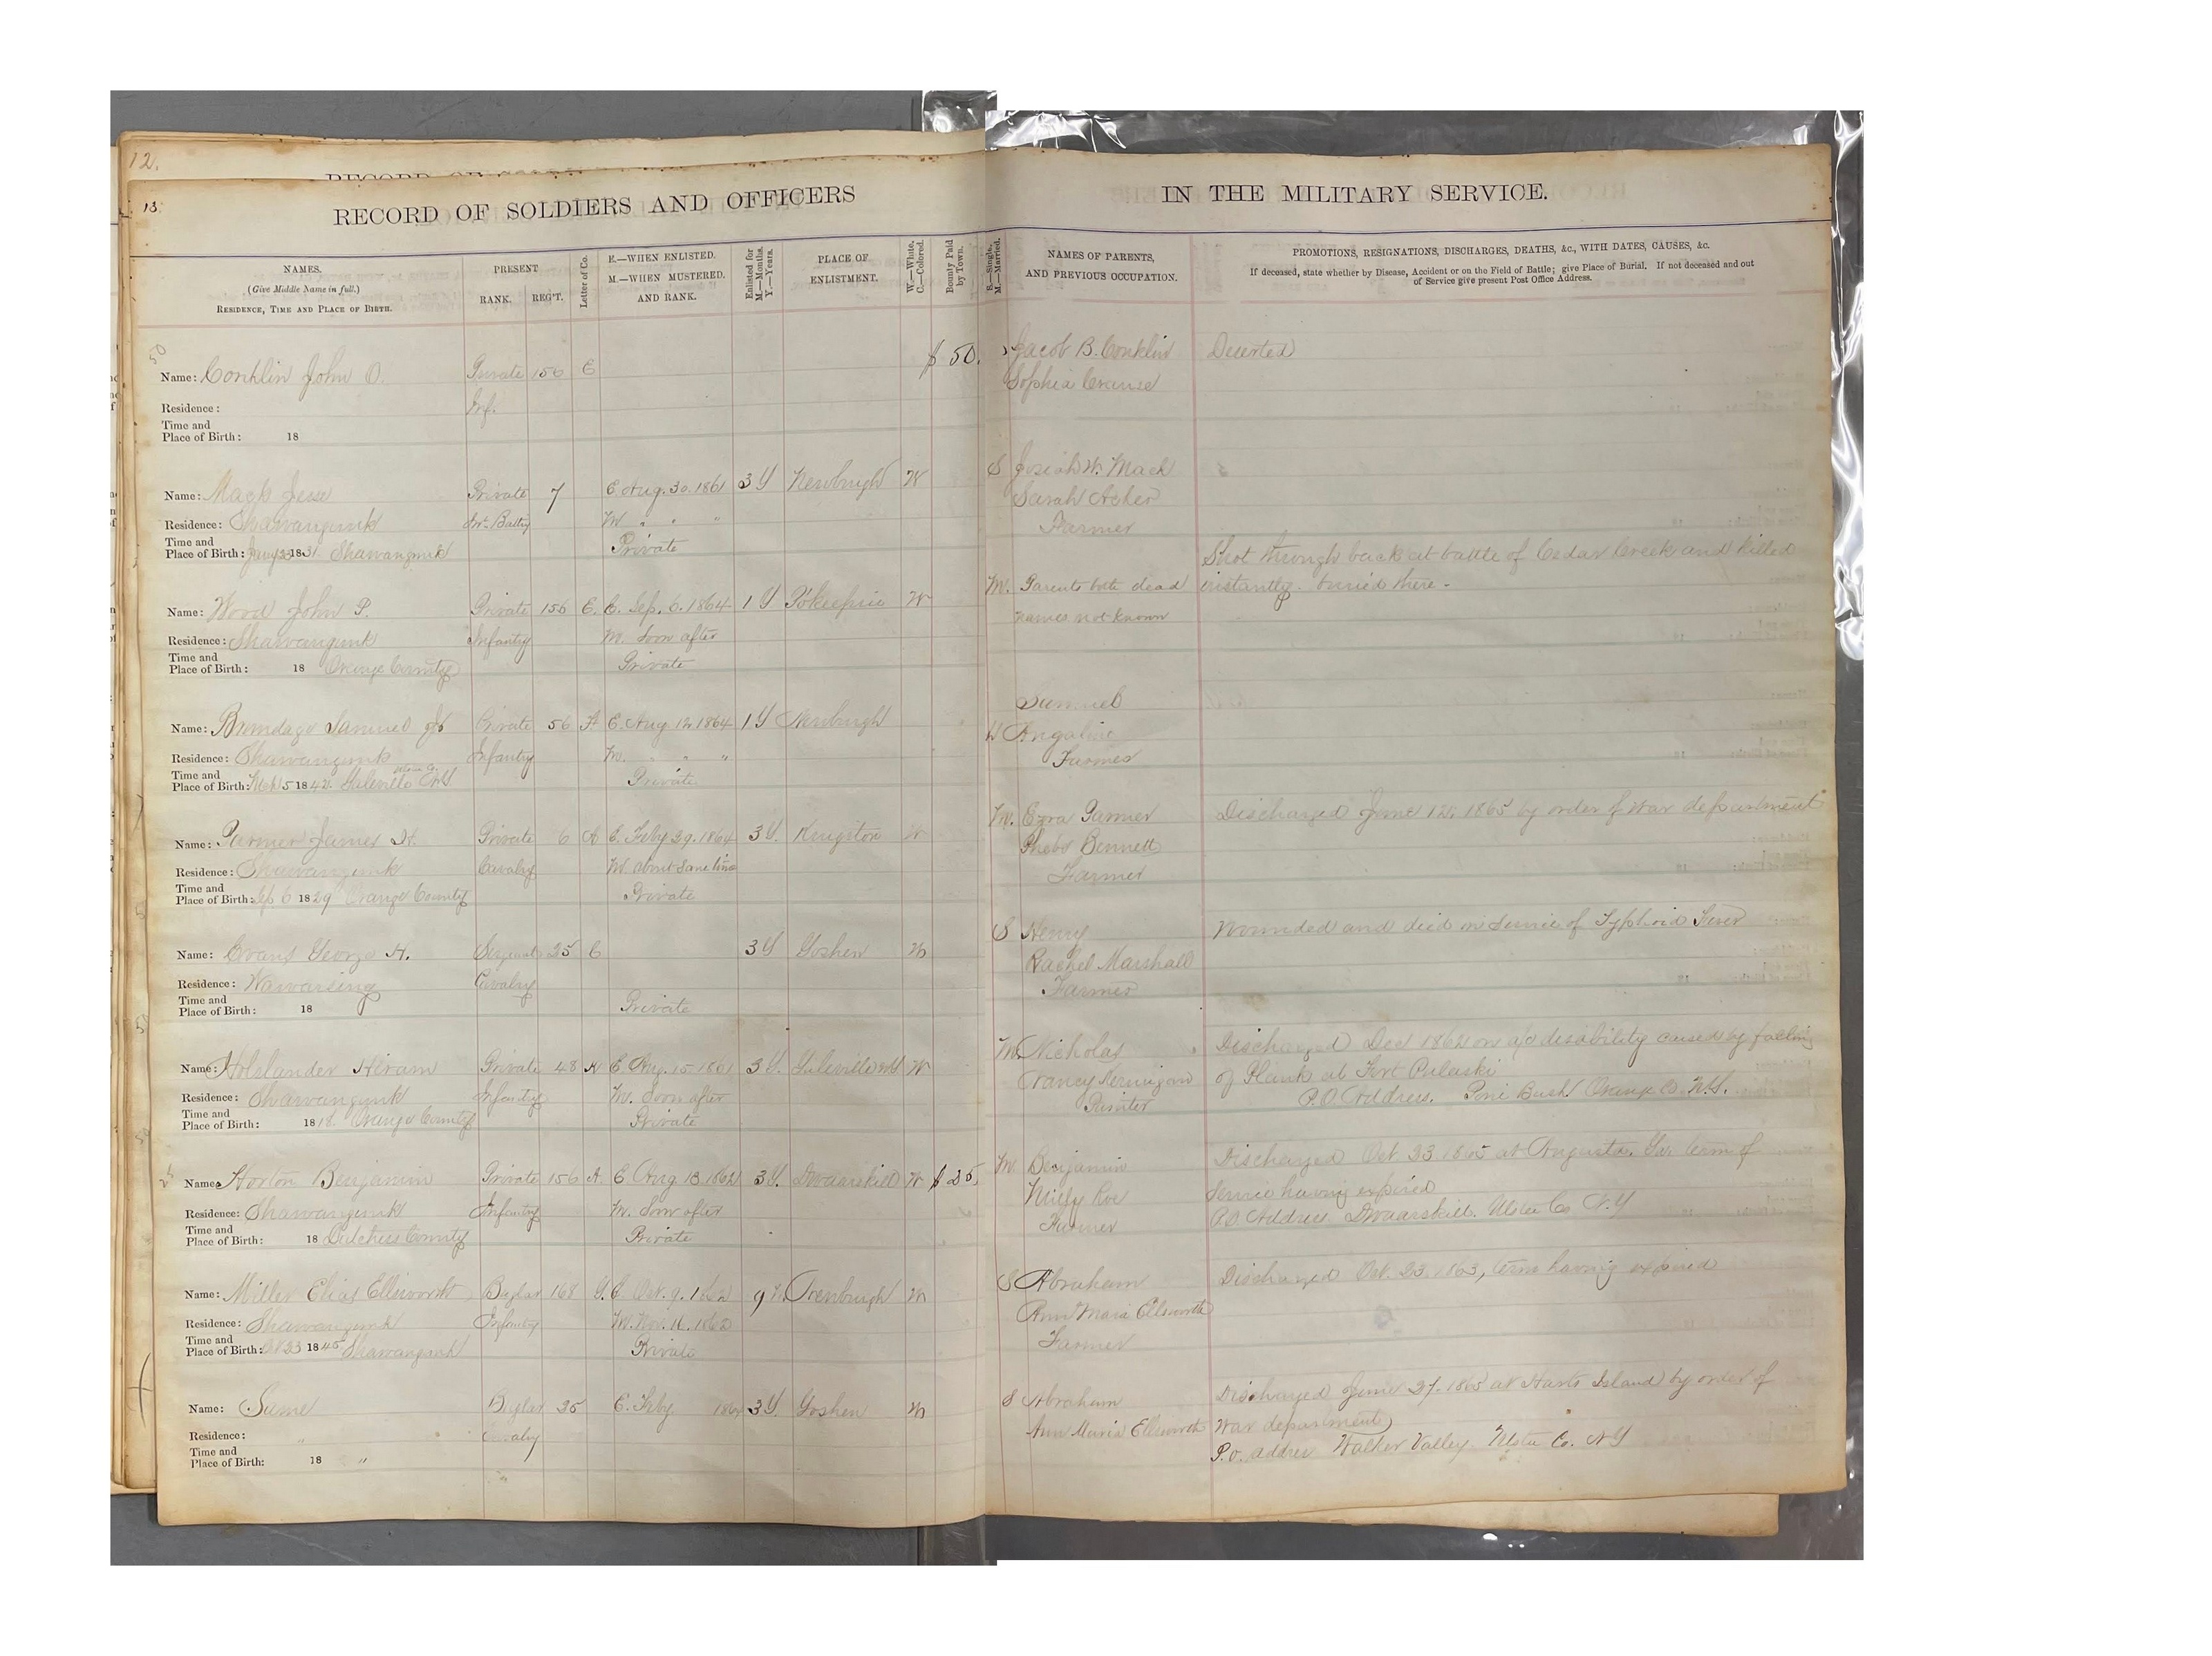 12.
13.
RECORD OF SOLDIERS AND OFFICERS
IN THE MILITARY SERVICE.
NAMES.
(Give Middle Name in full.)
RESIDENCE, TIME AND PLACE OF BIRTH.
PRESENT
RANK.
REG'T.
Letter of Co.
E.—WHEN ENLISTED.
M.—WHEN MUSTERED.
AND RANK.
Enlisted for
M.—Months.
Y.—Years.
PLACE OF
ENLISTMENT.
W.—White.
C.—Colored.
Bounty Paid
by Town.
S.—Single.
M.—Married.
NAMES OF PARENTS,
AND PREVIOUS OCCUPATION.
PROMOTIONS, RESIGNATIONS, DISCHARGES, DEATHS, &c., WITH DATES, CAUSES, &c.
If deceased, state whether by Disease, Accident or on the Field of Battle; give Place of Burial. If not deceased and out
of Service give present Post Office Address.
50
Name: Conklin John O. Private 156 E $ 50. Jacob B. Conklin Deserted
Sophia
Residence: Inf.
Time and
Place of Birth: 18
Name: Mack Jesse Private 7 E. Aug. 30. 1861 3 Y Newburgh W S Josiah W. Mack
Sarah Acker
Residence: Shawangunk Batty M " " "
Farmer
Time and
Place of Birth: 1831. Shawangunk Private
Shot through back at battle of Cedar Creek and killed
Name: Wood John P. Private 156 E. E. Sep. 6. 1864 1 Y Pokeepsie W M. Parents both dead instantly. buried there.
names not known
Residence: Shawangunk Infantry M. Soon after
Time and
Place of Birth: 18 Orange County Private
Samuel
Name: Brundage Samuel Private 56 A E. Aug 12. 1864 1 Y Newburgh Angaline
Residence: Shawangunk Infantry M. " " "
Farmer
Time and
Place of Birth: 5 1842. Private
Name: Parmer James H. Private 6 A E. Feby 29. 1864 3 Y. Kingston W M. Ezra Parmer Discharged June 12. 1865 by order of War department
Phebe Bennett
Residence: Shawangunk Cavalry M. about same time
Farmer
Time and
Place of Birth: Sep 6 1829 Orange County Private
Name: Evans George H. Sergeant 25 C 3 Y Goshen W S Henry Wounded and died in Service of Typhoid Fever
Rachel Marshall
Residence: Wawarsing Cavalry
Farmer
Time and
Place of Birth: 18 Private
Name: Hiram Private 48 E Aug. 15 1861 3 Y. W M. Nicholas Discharged Dec 1862 on a/c disability caused by falling
Nancy of Plank at Fort Pulaski
Residence: Shawangunk Infantry M. Soon after
Painter P.O. Address. Pine Bush Orange Co. N.Y.
Time and
Place of Birth: 1818. Orange County Private
25
Name: Horton Benjamin Private 156 A. E Aug 13. 1862 3 Y. Dwaarskill W $ 25. M. Benjamin Discharged Oct 23 1865 at Augusta. Ga. term of
Milly Roe Service having expired
Residence: Shawangunk Infantry M. Soon after
Farmer P.O. Address Dwaarskill. Ulster Co N.Y
Time and
Place of Birth: 18 Dutchess County Private
Name: Miller Elias Ellsworth Bugler 168 G. E. Oct. 9. 1862 9 W S Abraham Discharged Oct. 23. 1863, term having expired
Ann Maria Ellsworth
Residence: Shawangunk Infantry M. Nov. 1862
Farmer
Time and
Place of Birth: 23 1845 Shawangunk Private
Name: Same Bugler 25 E. Feby. 1864 3 Y. Goshen W S Abraham Discharged June 27. 1865 at Harts Island by order of
Ann Maria Ellsworth War department
Residence: " Cavalry
P.O. address Walker Valley Ulster Co. N Y
Time and
Place of Birth: 18 "